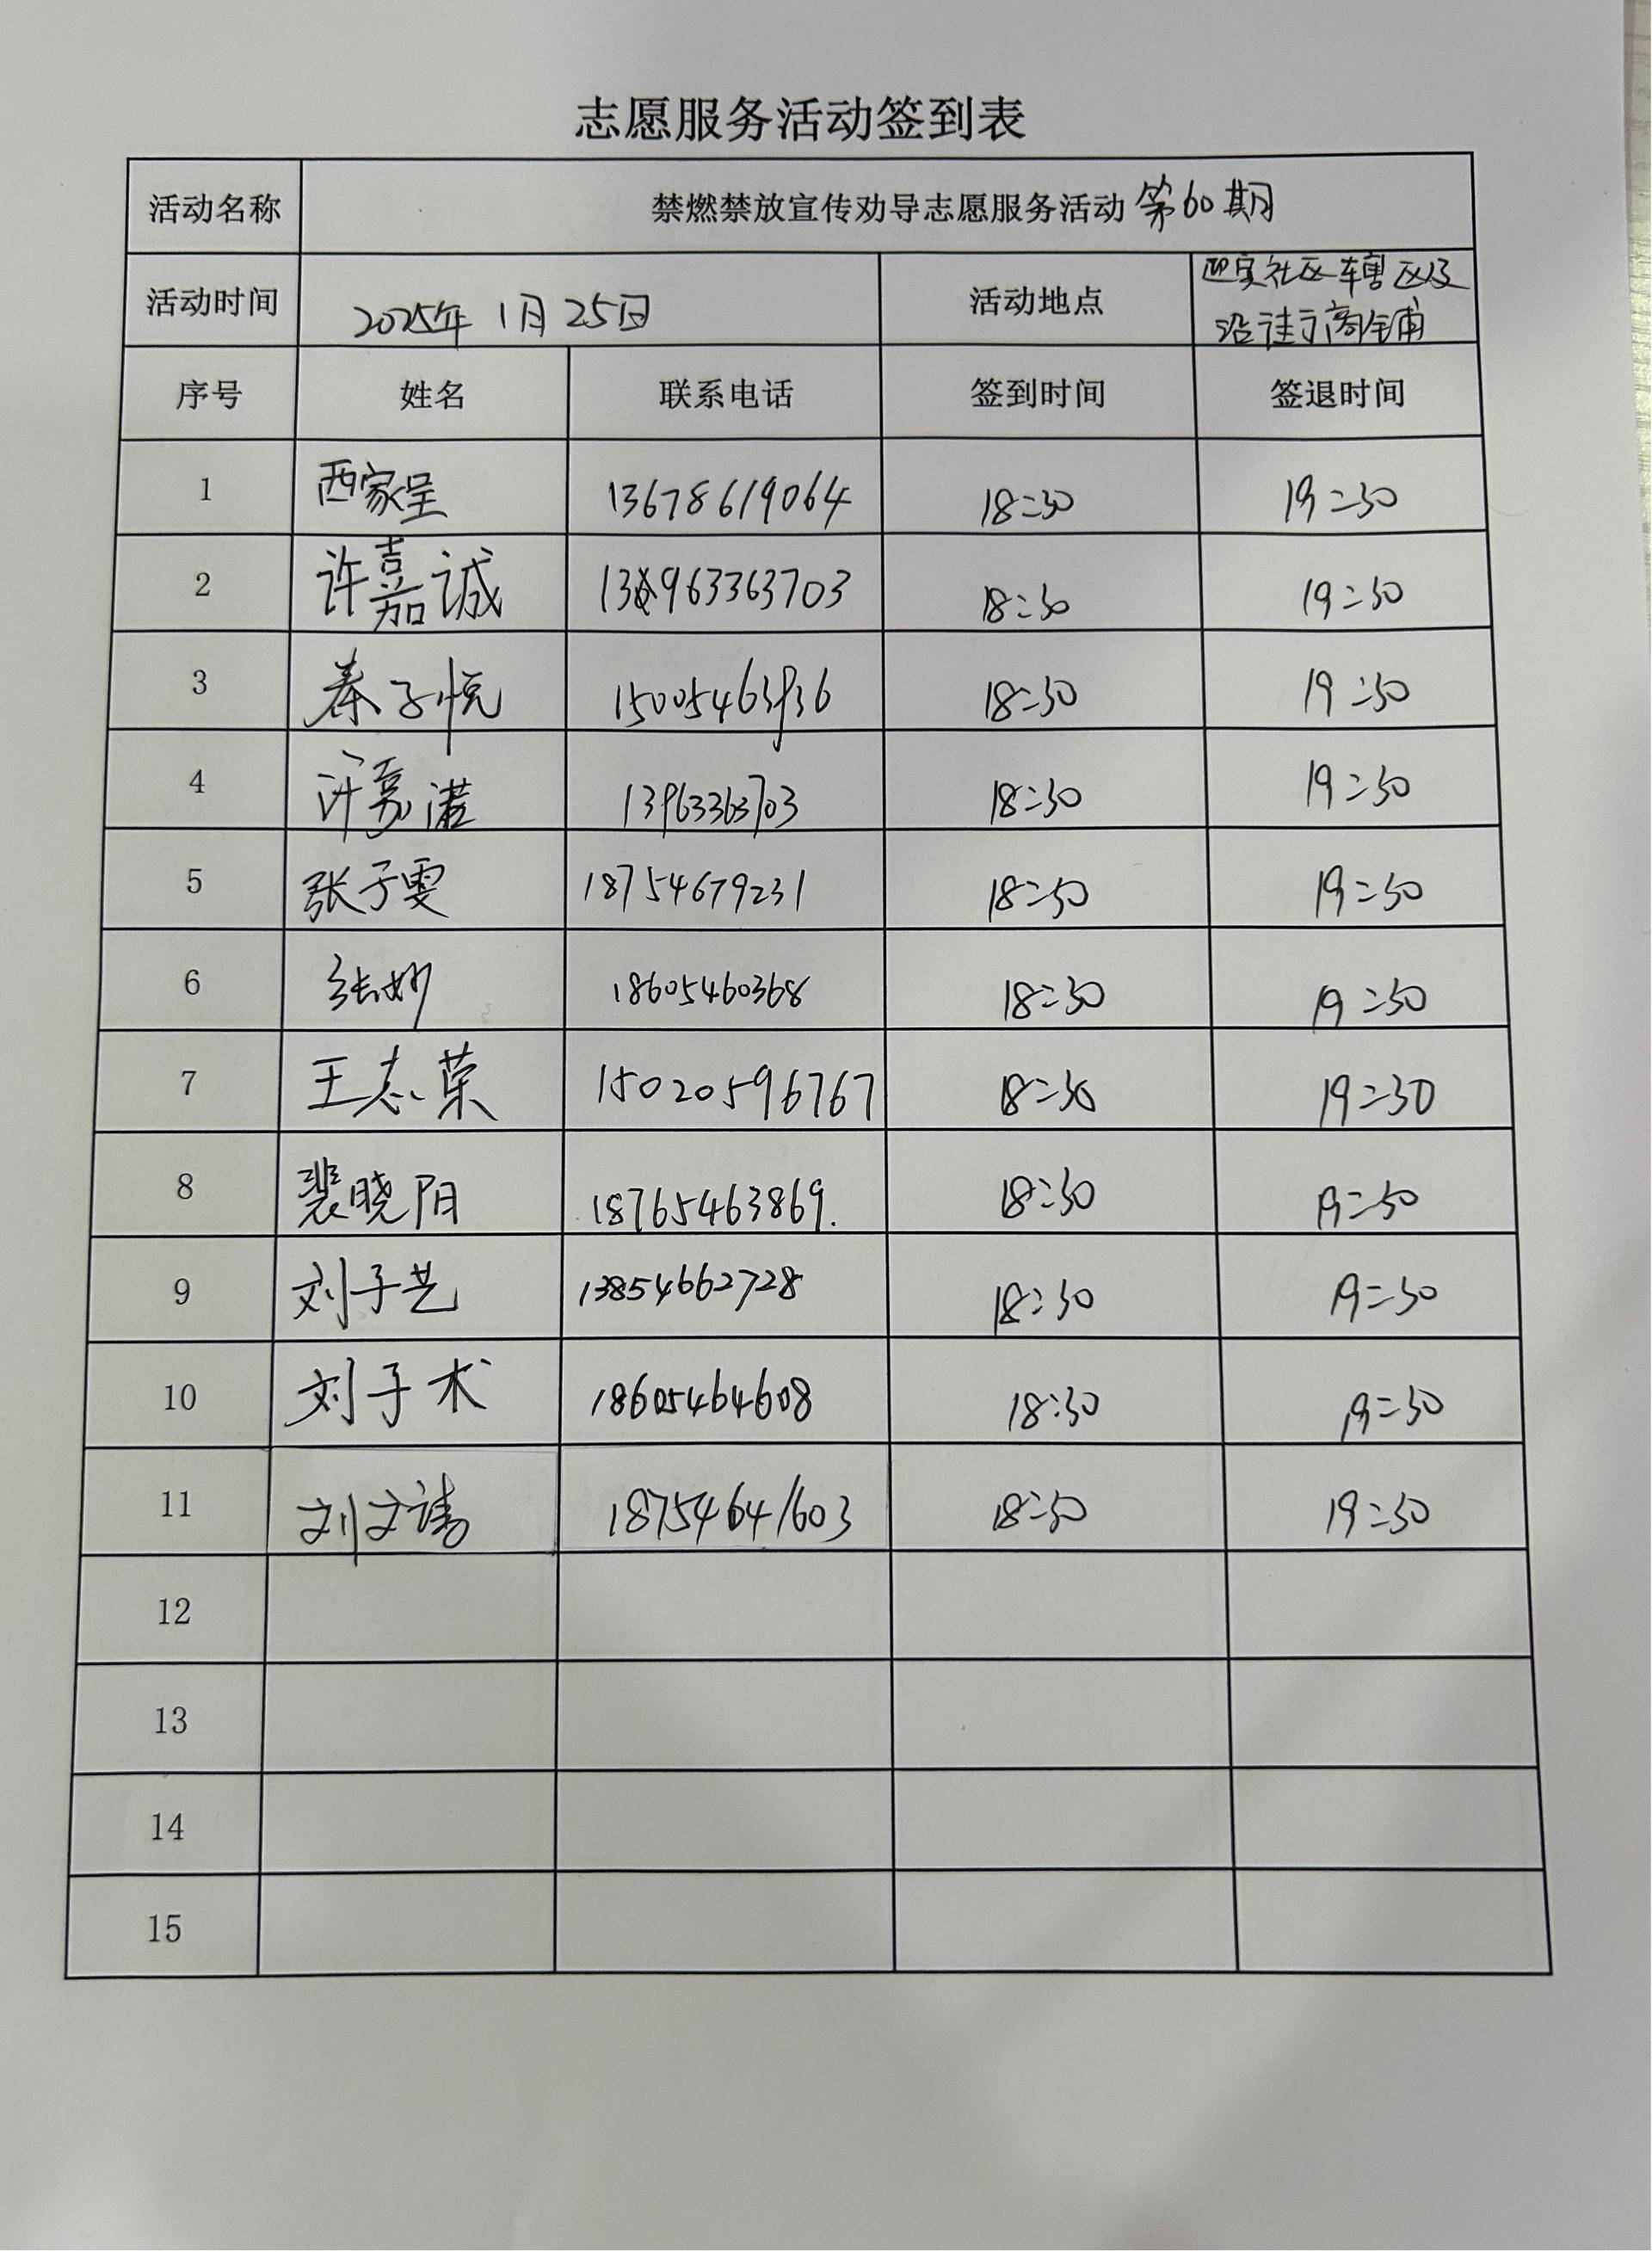 志愿服务活动签到表
活动名称 禁燃禁放宣传劝导志愿服务活动 第60期
活动时间 2025年 1月 25日 活动地点 迎宾社区辖区及
沿街商铺
序号 姓名 联系电话 签到时间 签退时间
1 西家呈 13678619064 18:30 19:30
2 许嘉诚 13963363703 18:30 19:30
3 秦子悦 15005463936 18:30 19:30
4 许嘉诺 13963363703 18:30 19:30
5 张子雯 18754679231 18:30 19:30
6 张妙 18605460368 18:30 19:30
7 王志荣 15020596767 18:30 19:30
8 裴晓阳 18765463869. 18:30 19:30
9 刘子艺 13854662728 18:30 19:30
10 刘子术 18605464608 18:30 19:30
11 刘文靖 18754641603 18:30 19:30
12
13
14
15